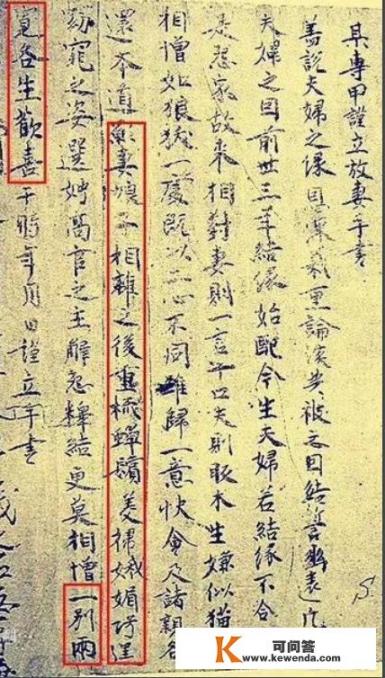 某專甲謹立放妻手書
蓋說夫婦之緣恩深義重論談共被之因結誓幽遠凡
夫婦之因前世三年結緣始配今生夫婦若結緣不合
是怨家故來相對妻則一言十口夫則販木生嫌似猫
相憎如狼犾一處既以二心不同難歸一意快會及諸親各
還本道願妻娘子相離之後重梳蟬鬢美掃娥媚巧逞
窈窕之姿選娉高官之主解怨釋結更莫相憎一別兩
寬各生歡喜于時年月日謹立手書
S.
K 可问答
www.kewenda.com